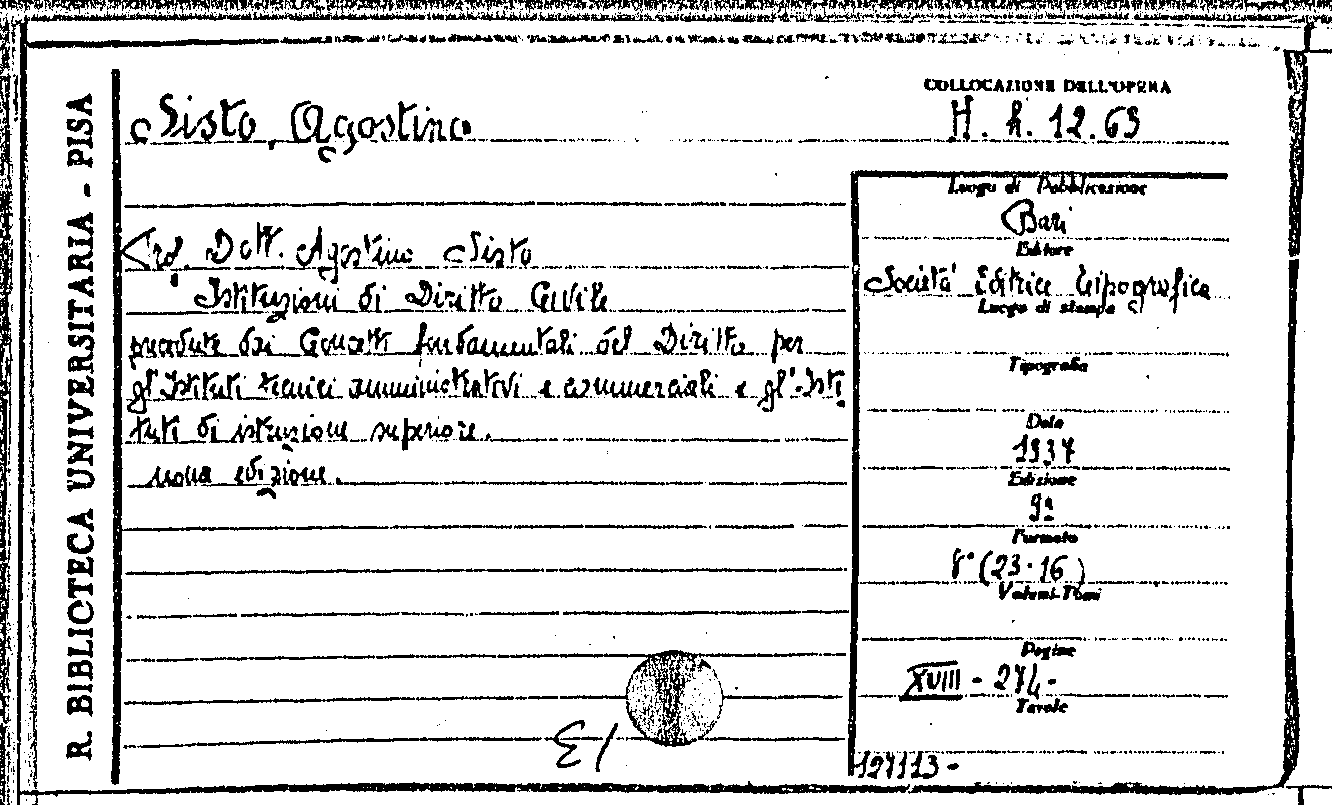 R. BIBLIOTECA UNIVERSITARIA - PISA
Sisto, Agostino
COLLOCAZIONE DELL'OPERA
H. h. 12.63
Prof. Dott. Agostino Sisto
Istituzioni di Diritto Civile
precedute dai Concetti fondamentali del Diritto per
gl'Istituti tecnici amministrativi e commerciali e gl'Isti
tuti di istruzione superiore.
nona edizione.
Luogo di Pubblicazione
Bari
Editore
Società Editrice Tipografica
Luogo di stampa
Tipografia
Data
1937
Edizione
9ª
Formato
8° (23·16)
Volumi-Tomi
Pagine
XVIII - 274-
Tavole
127113-